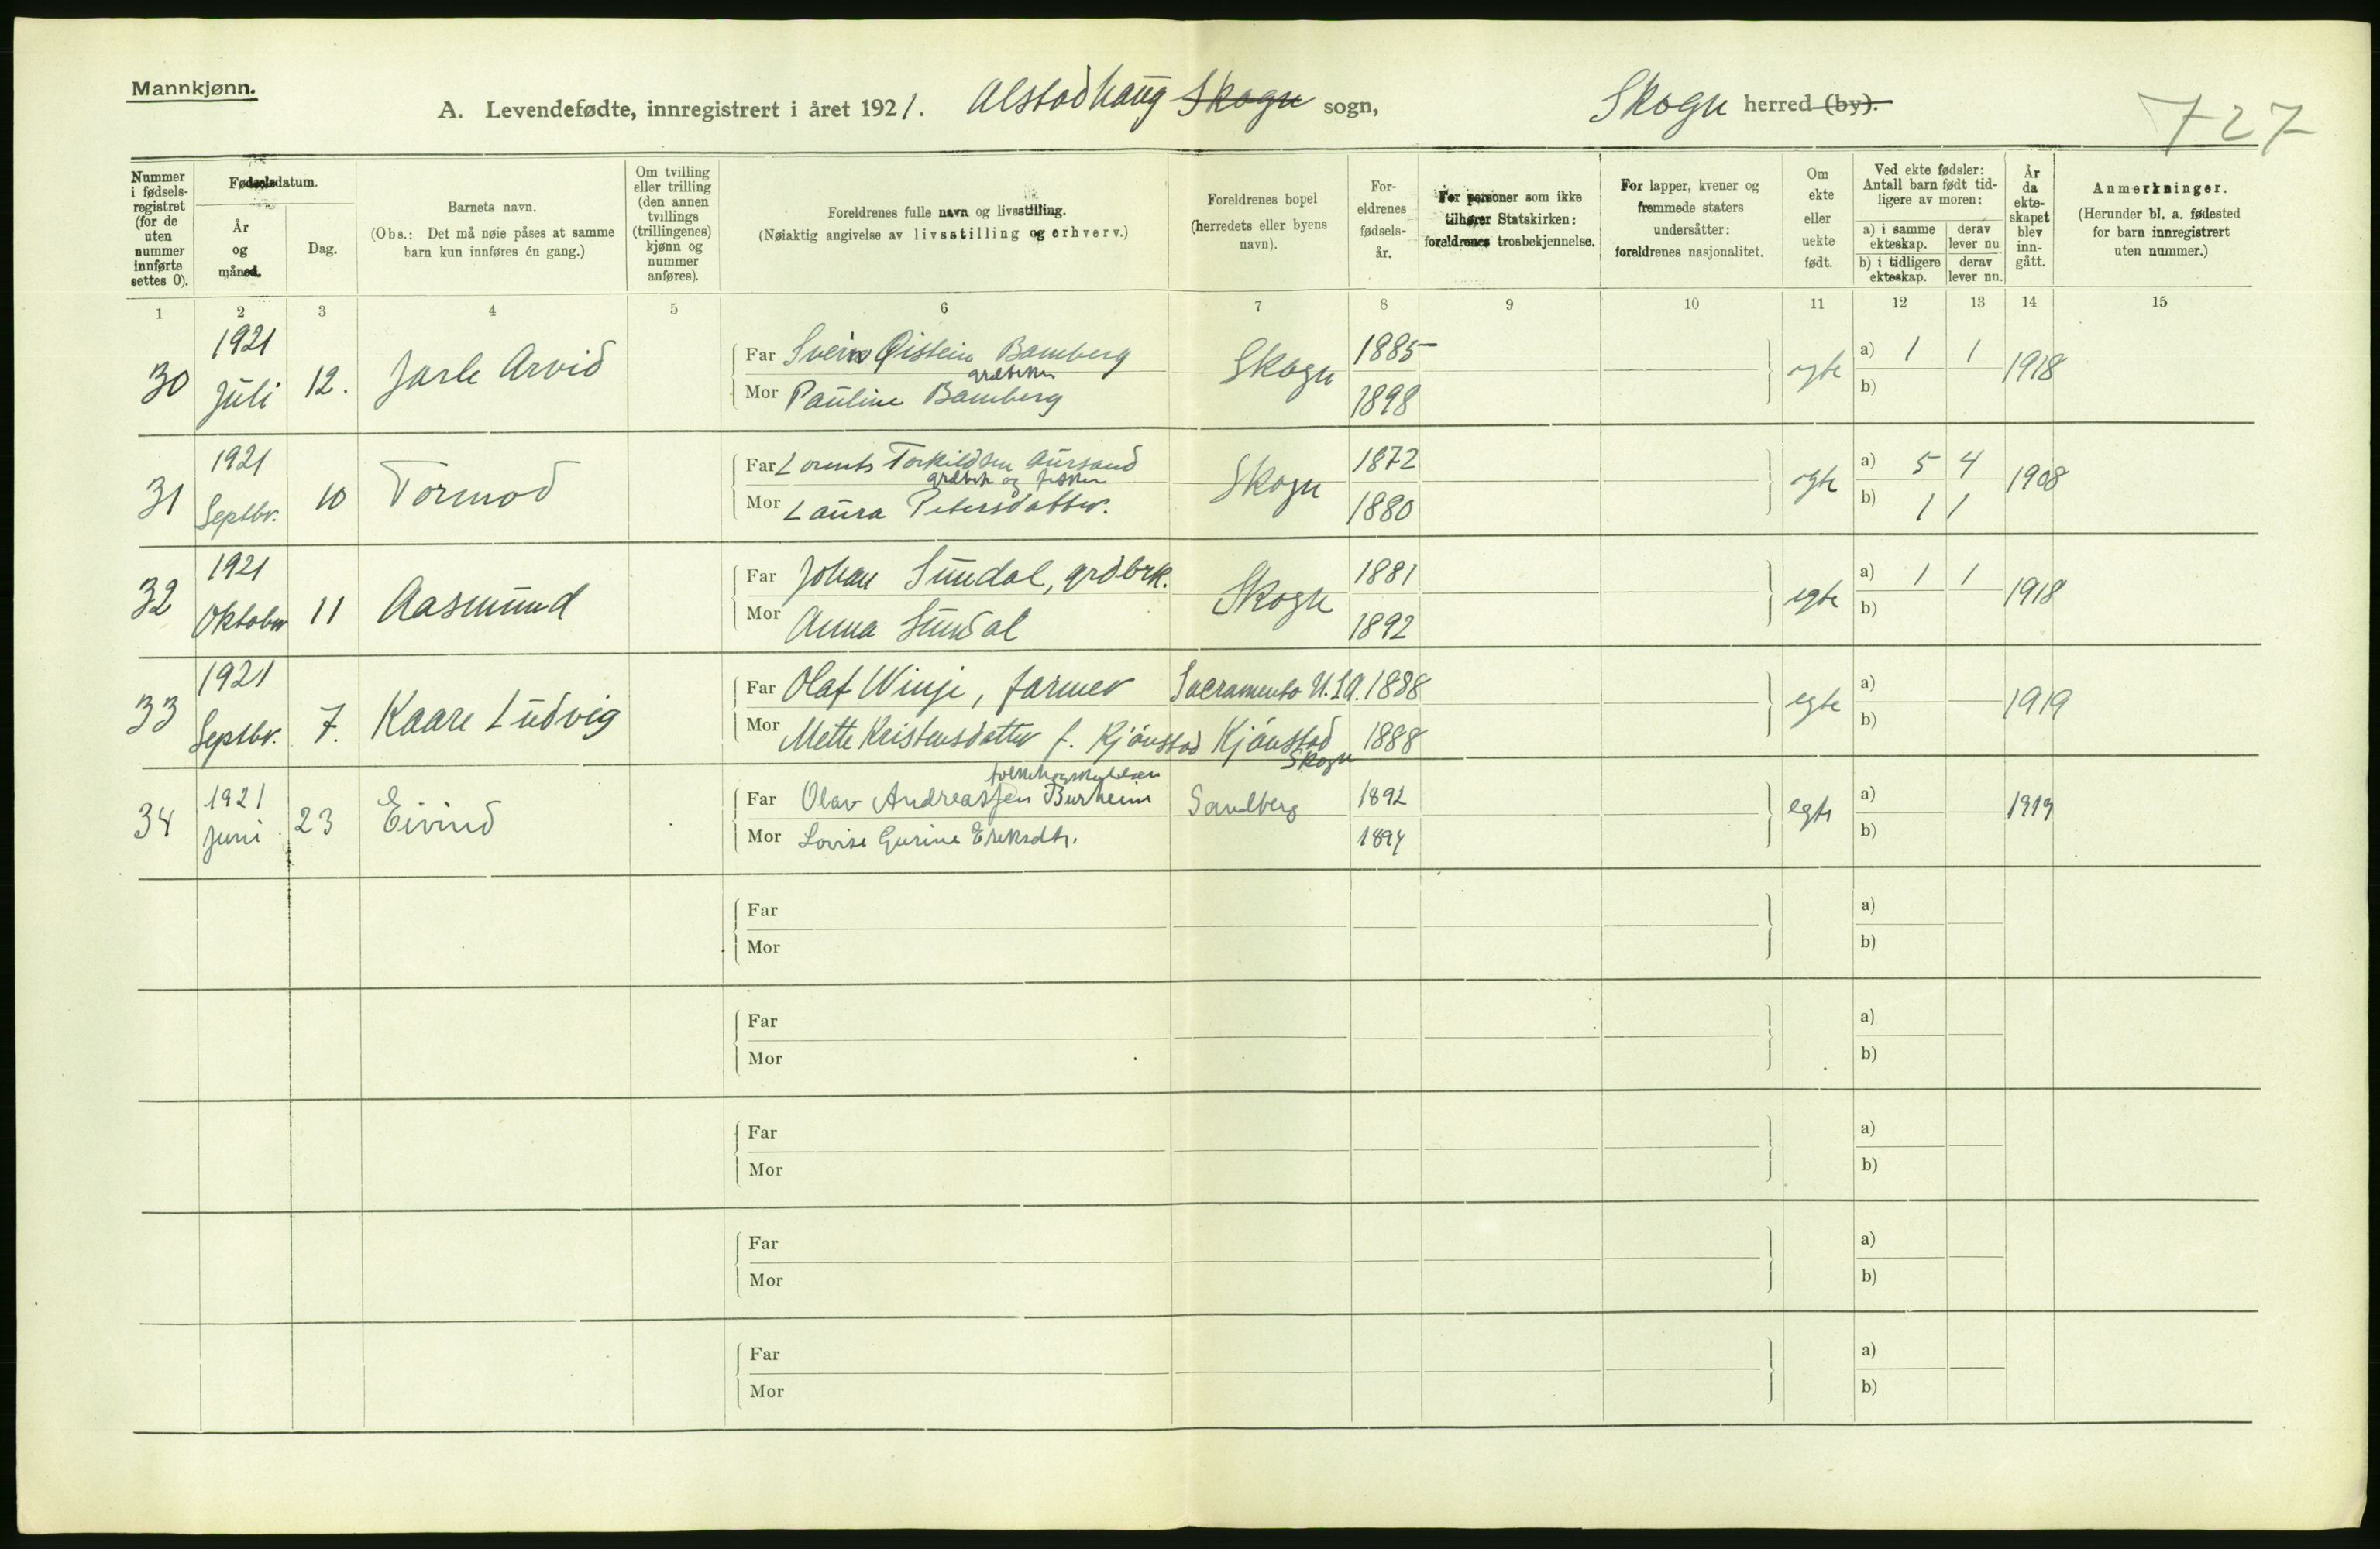 Mannkjønn.
A. Levendefødte, innregistrert i året 1921. Alstadhaug Skogn sogn, Skogn herred (by).
727
Nummer i fødselsregistret (for de uten nummer innførte settes 0).
Fødselsdatum.
År og måned.
Dag.
Barnets navn.
(Obs.: Det må nøie påses at samme barn kun innføres én gang.)
Om tvilling eller trilling (den annen tvillings (trillingenes) kjønn og nummer anføres).
Foreldrenes fulle navn og livsstilling.
(Nøiaktig angivelse av livsstilling og erhverv.)
Foreldrenes bopel (herredets eller byens navn).
Foreldrenes fødselsår.
For personer som ikke tilhører Statskirken: foreldrenes trosbekjennelse.
For lapper, kvener og fremmede staters undersåtter: foreldrenes nasjonalitet.
Om ekte eller uekte født.
Ved ekte fødsler: Antall barn født tidligere av moren:
a) i samme ekteskap. derav lever nu
b) i tidligere ekteskap. derav lever nu.
År da ekteskapet blev inngått.
Anmerkninger.
(Herunder bl. a. fødested for barn innregistrert uten nummer.)
1 2 3 4 5 6 7 8 9 10 11 12 13 14 15
30 1921 Juli 12. Jarle Arvid
Far Svein Øistein Bamberg grdbrker
Mor Pauline Bamberg
Skogn 1885 1898 egte a) 1 1 b) 1918
31 1921 Septbr. 10 Tormod
Far Lorents Torkildsen Aursand
grdbrk og fisker
Mor Laura Petersdatter.
Skogn 1872 1880 egte a) 5 4 b) 1 1 1908
32 1921 Oktober 11 Aasmund
Far Johan Sundal, grdbrk.
Mor Anna Sundal
Skogn 1881 1892 egte a) 1 1 b) 1918
33 1921 Septbr. 7. Kaare Ludvig
Far Olaf Winje, farmer Sacramento U.S.A. 1888
Mor Mette Kristensdatter f. Kjønstad Kjønstad Skogn 1888
egte a) b) 1919
34 1921 Juni 23 Eivind
Far Olav Andreassen Burheim
Mor Lovise Gurine Ereksdtr.
Sandberg 1892 1894 egte a) b) 1919
Far
Mor
a)
b)
Far
Mor
a)
b)
Far
Mor
a)
b)
Far
Mor
a)
b)
Far
Mor
a)
b)